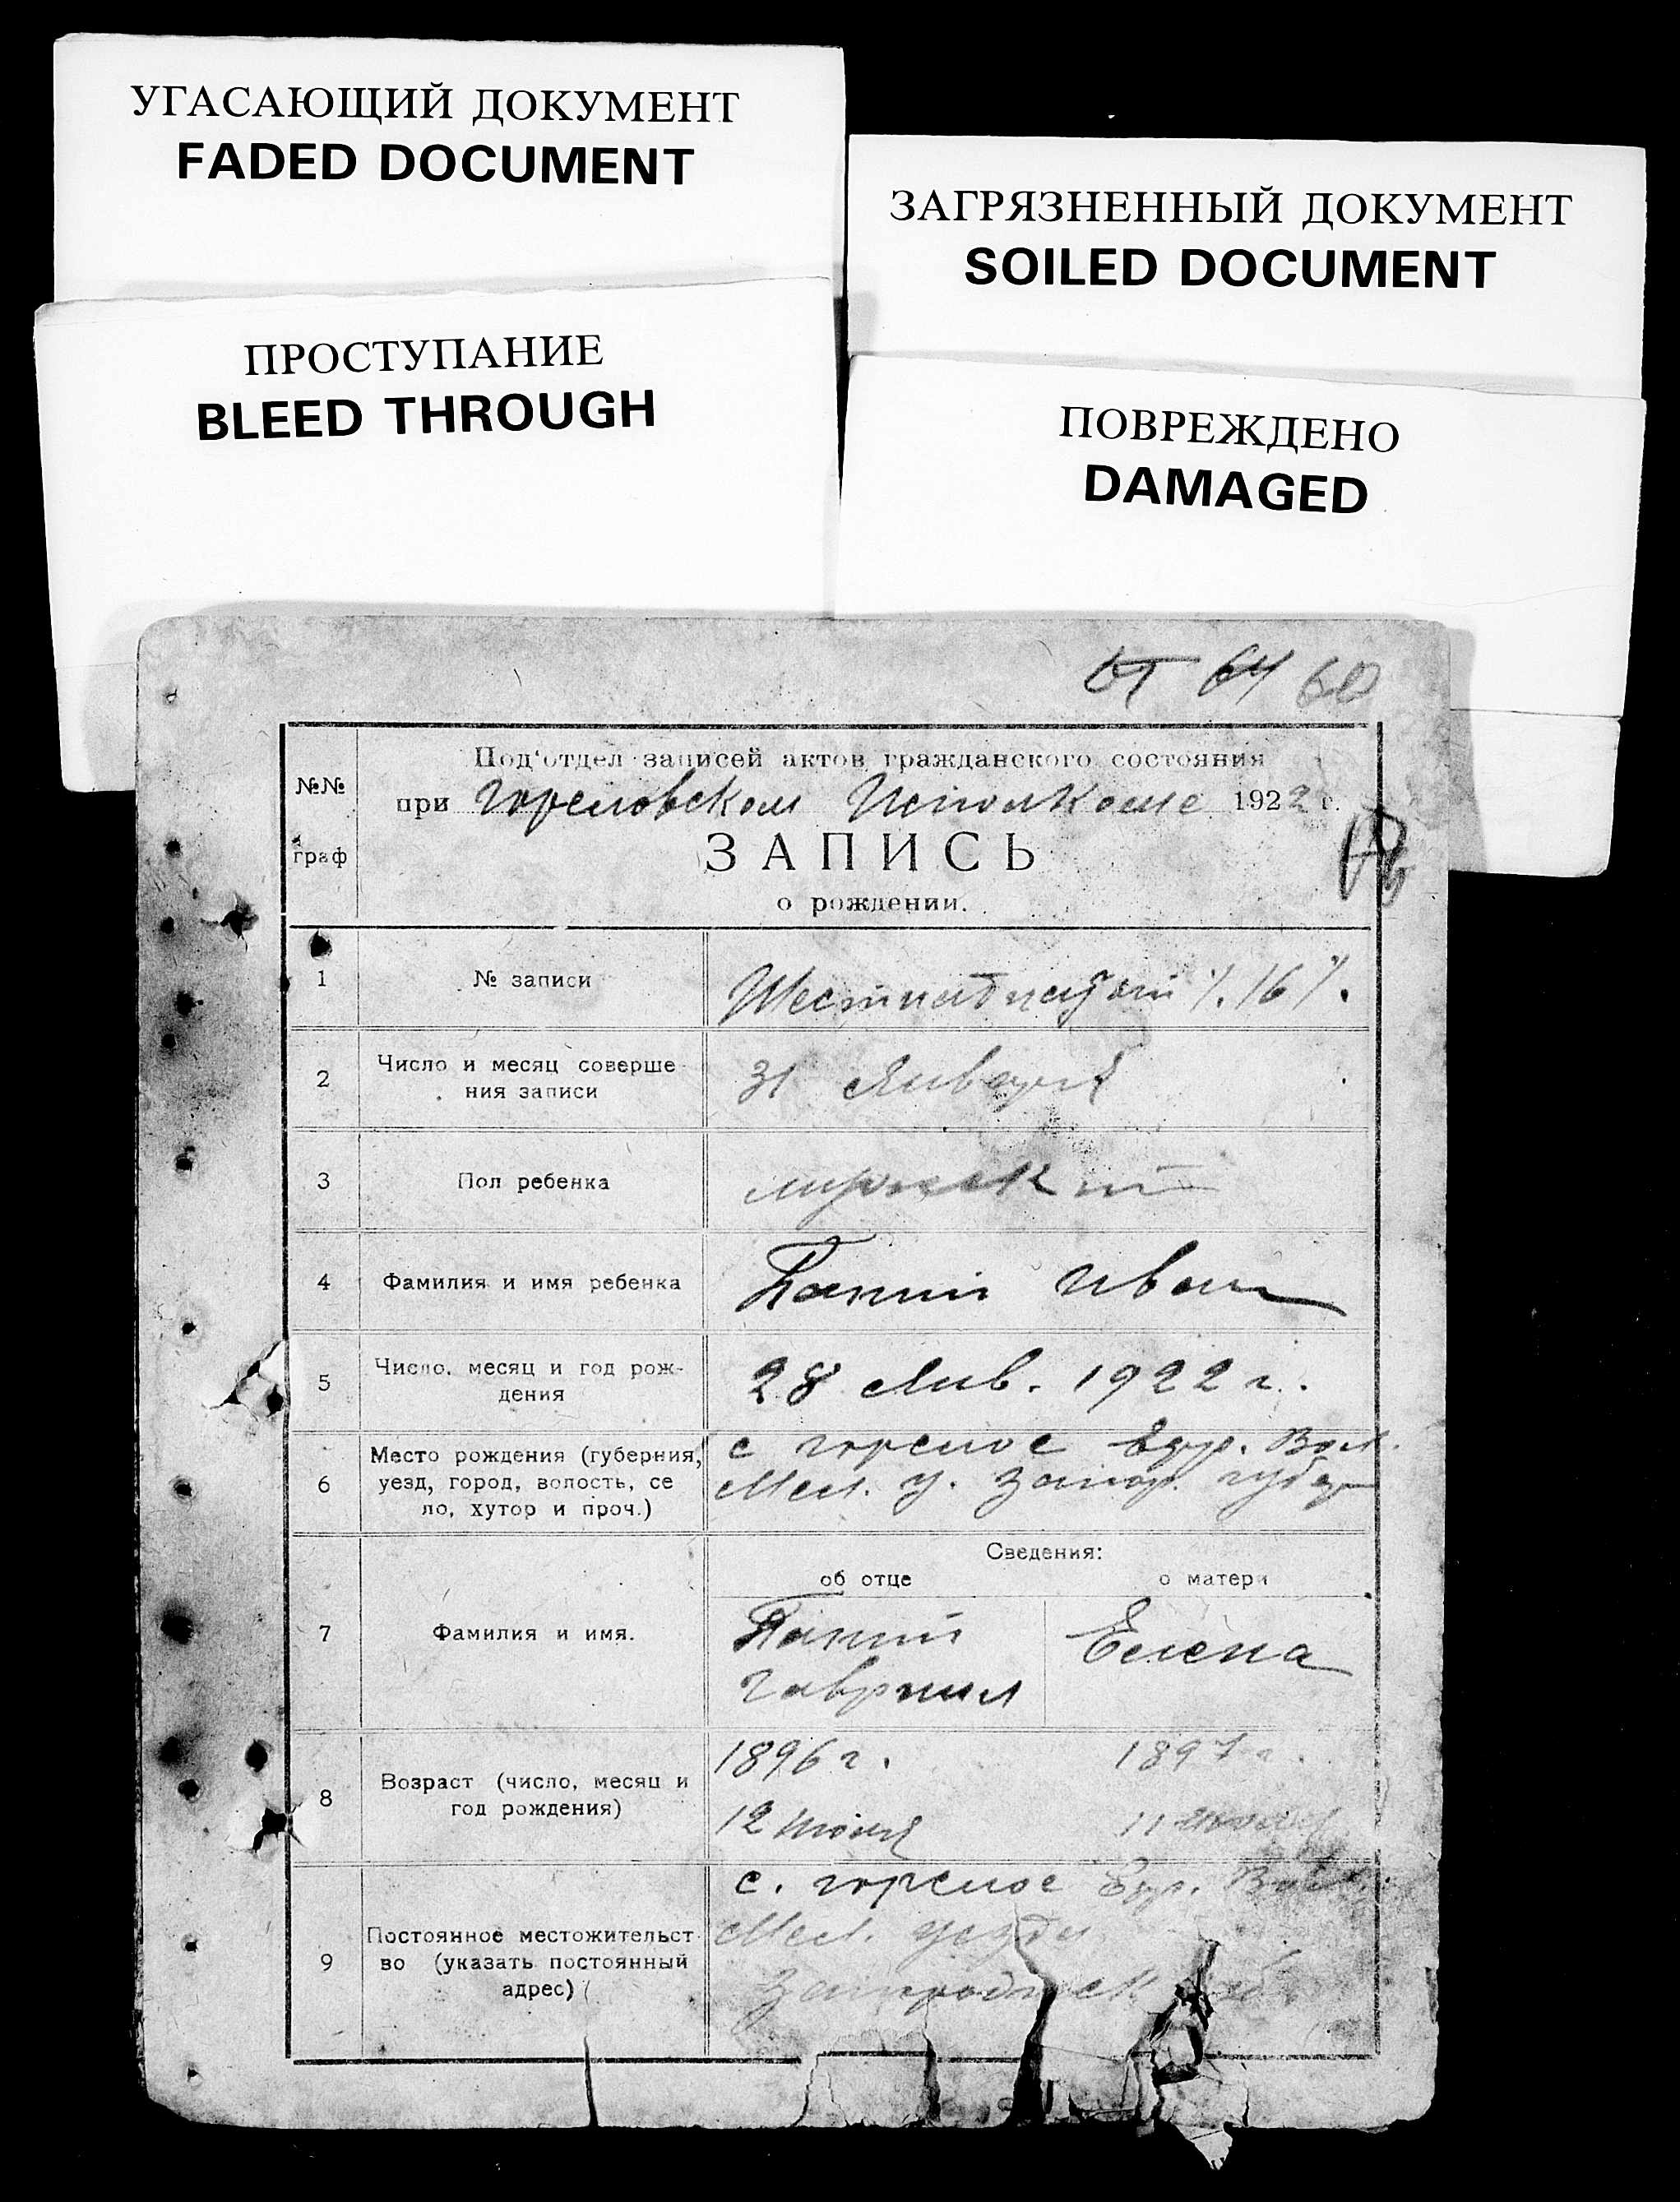 УГАСАЮЩИЙ ДОКУМЕНТ
FADED DOCUMENT
ЗАГРЯЗНЕННЫЙ ДОКУМЕНТ
SOILED DOCUMENT
ПРОСТУПАНИЕ
BLEED THROUGH
ПОВРЕЖДЕНО
DAMAGED
60
Под'отдел записей актов гражданского состояния
№№ при Гореловском Исполкоме 1922 г.
граф ЗАПИСЬ
о рождении.
1 № записи Шестнадцать /.16/.
2 Число и месяц соверше
ния записи 31 Января
3 Пол ребенка мужской
4 Фамилия и имя ребенка Иван
5 Число, месяц и год рож-
дения 28 Янв. 1922 г.
Место рождения (губерния, с Горелое Вол.
6 уезд, город, волость, се Мел. у. Запор. губер
ло, хутор и проч.)
Сведения:
об отце о матери
7 Фамилия и имя. Елена
Гавриил
1896 г. 1897 г.
8 Возраст (число, месяц и
год рождения) 12 Июля 11
с. Горелое Вол.
Постоянное местожительст Мел. уезда
9 во (указать постоянный
адрес)